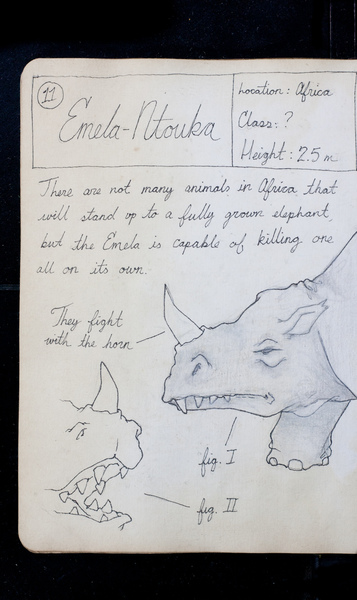 11
Emela-Ntouka
Location: Africa
Class: ?
Height: 2.5 m
There are not many animals in Africa that
will stand up to a fully grown elephant,
but the Emela is capable of killing one
all on its own.
They fight
with the horn
fig. I
fig. II